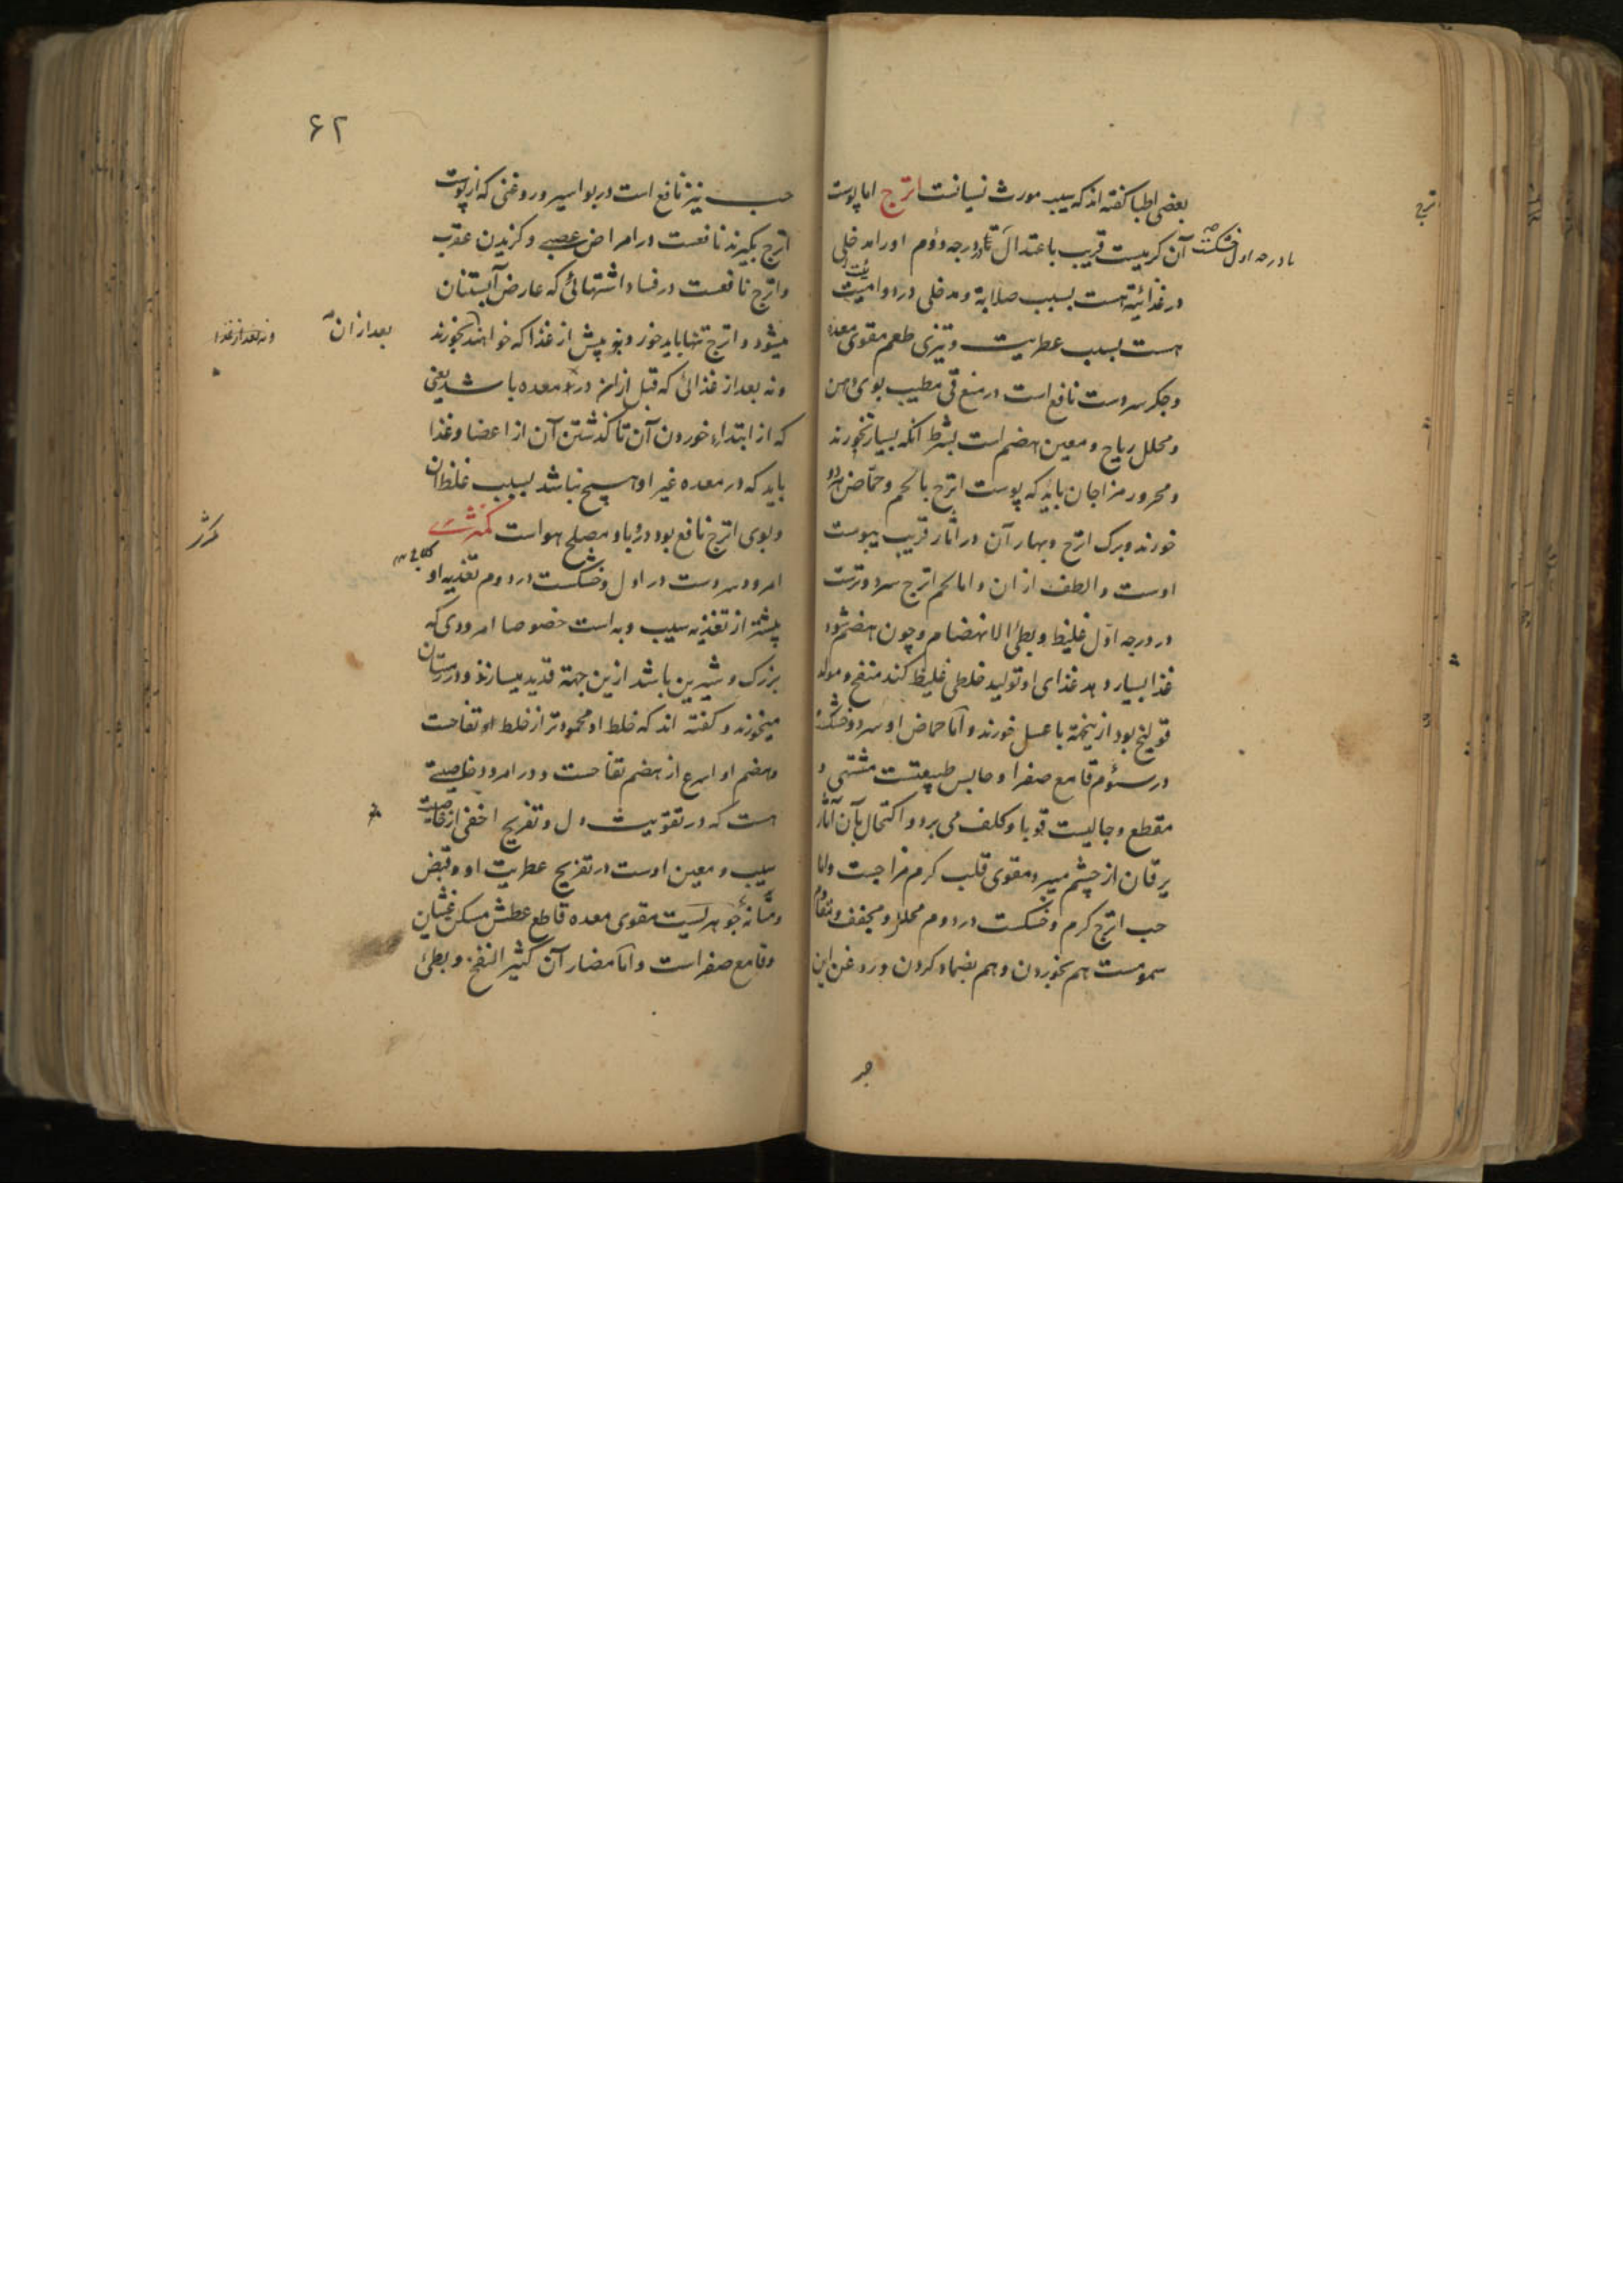 بعضی اطبا کفته اند که سیب مورث نسیانست اترج اما پوست
آن کرمیست قریب باعتدال تا درجه دوم او را مدخلی
در غذائیة هست بسبب صلابة و مدخلی در دوائیت
هست بسبب عطریت و تیزی طعم مقوی معده
و جکر سردست نافع است در منع قی مطیب بوی دهن
و محلل ریاح و معین هضم است بشرط آنکه بسیار نخورند
و محرور مزاجان باید که پوست اترج با لحم و حماض
خورند و برک اترج و بهار آن در آثار قریب بپوست
اوست و الطف از ان و اما لحم اترج سرد و ترست
در درجه اول غلیظ و بطئ الانهضام و چون هضم شود
غذا بسیار دهد غذای او تولید خلطی غلیظ کند منفخ و مولد
قولنج بود ازینجهة با عسل خورند و اما حماض او سرد و خشک
در سوم قامع صفرا و حابس طبیعتست مشتهی و
مقطع و جالیست قوبا و کلف می برد و اکتحال بآن آثار
یرقان از چشم میبرد مقوی قلب کرم مزاجست و اما
حب اترج کرم و خشکست در دوم محلل و مجفف و مقاوم
سمومست هم بخوردن و هم بضماد کردن و روغن این
اترج
خشکست
تا درجه اول
۶۲
حب نیز نافع است در بواسیر و روغنی که از پوست
اترج بکیرند نافعست در امراض عصبی و کزیدن عقرب
و اترج نافعست در فساد اشتهائی که عارض آبستنان
میشود و اترج تنها باید خورد نه پیش از غذا که خواهند بخورند
و نه بعد از غذائی که قبل از ان در معده باشد یعنی
که از ابتداء خوردن آن تا کذشتن آن از اعضا و غذا
باید که در معده غیر او هیچ نباشد بسبب غلظ آن
و بوی اترج نافع بود در وبا و مصلح هواست کمثری
امرود سردست در اول و خشکست در دوم تغذیه او
بیشتر از تغذیه سیب و به است خصوصا امرودی که
بزرک و شیرین باشد ازین جهة قدید میسازند و در زمستان
میخورند و کفته اند که خلط او محمودتر از خلط تفاحست
و هضم او اسرع از هضم تفاحست و در امرود خاصیتی
هست که در تقویت دل و تفریح اخفی از خاصیت
سیب و معین اوست در تفریح عطریت او و قبض
و متانة جوهریست مقوی معده قاطع عطش مسکن غشیان
و قامع صفراست و اما مضار آن کثیر النفخ و بطئ
بعد از ان
و نه بعد از غذا